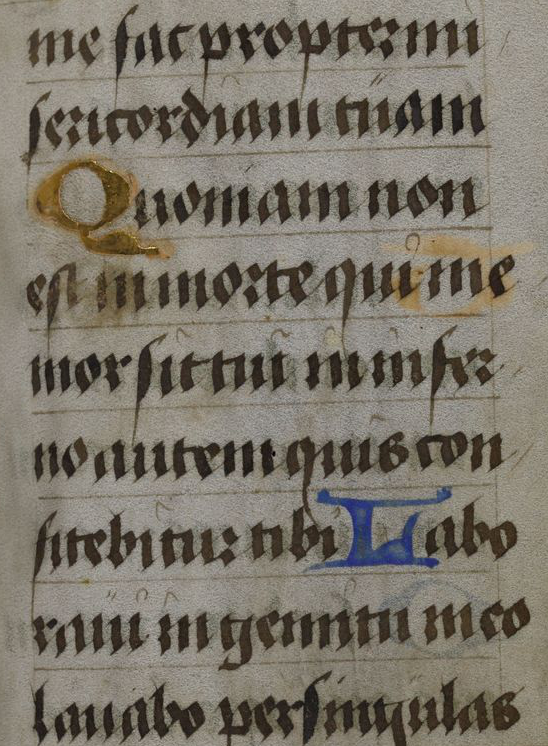 me fac propter mi
sericordiam tuam
Quoniam non
est in morte qui me
mor sit tui in infer-
no autem quis con
fitebitur tibi Labo
raui in gemitu meo
lauabo per singulas